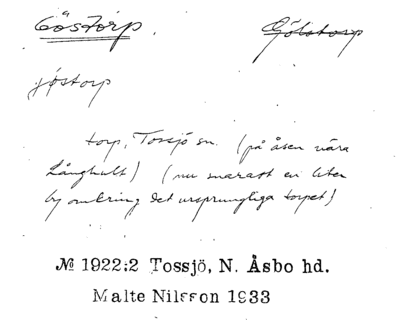 Göstorp. Gölstorp
jøstorp
torp, Tossjö sn. (på åsen nära
Långhult) (nu snarast en liten
by omkring det ursprungliga torpet)
№ 1922:2 Tossjö, N. Åsbo hd.
Malte Nilsson 1933